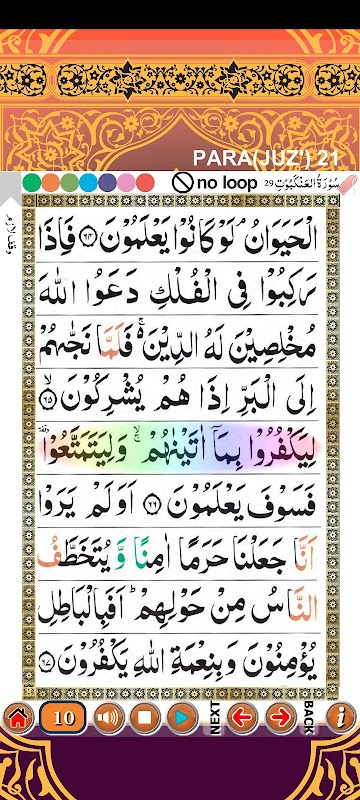 PARA(JUZ') 21
no loop 29 سُوْرَةُ الْعَنْكَبُوْتِ
الْحَيَوَانُ ۘ لَوْ كَانُوْا يَعْلَمُوْنَ ﴿۶۴﴾ فَاِذَا
رَكِبُوْا فِى الْفُلْكِ دَعَوُا اللّٰهَ
مُخْلِصِيْنَ لَهُ الدِّيْنَ ۚ۬ فَلَمَّا نَجّٰىهُمْ
اِلَى الْبَرِّ اِذَا هُمْ يُشْرِكُوْنَ ۙ﴿۶۵﴾
لِيَكْفُرُوْا بِمَاۤ اٰتَيْنٰهُمْ ۙۚ وَلِيَتَمَتَّعُوْا ٝ
فَسَوْفَ يَعْلَمُوْنَ ﴿۶۶﴾ اَوَلَمْ يَرَوْا
اَنَّا جَعَلْنَا حَرَمًا اٰمِنًا وَّ يُتَخَطَّفُ
النَّاسُ مِنْ حَوْلِهِمْ ؕ اَفَبِالْبَاطِلِ
يُؤْمِنُوْنَ وَ بِنِعْمَةِ اللّٰهِ يَكْفُرُوْنَ ﴿۶۷﴾
10 NEXT BACK i